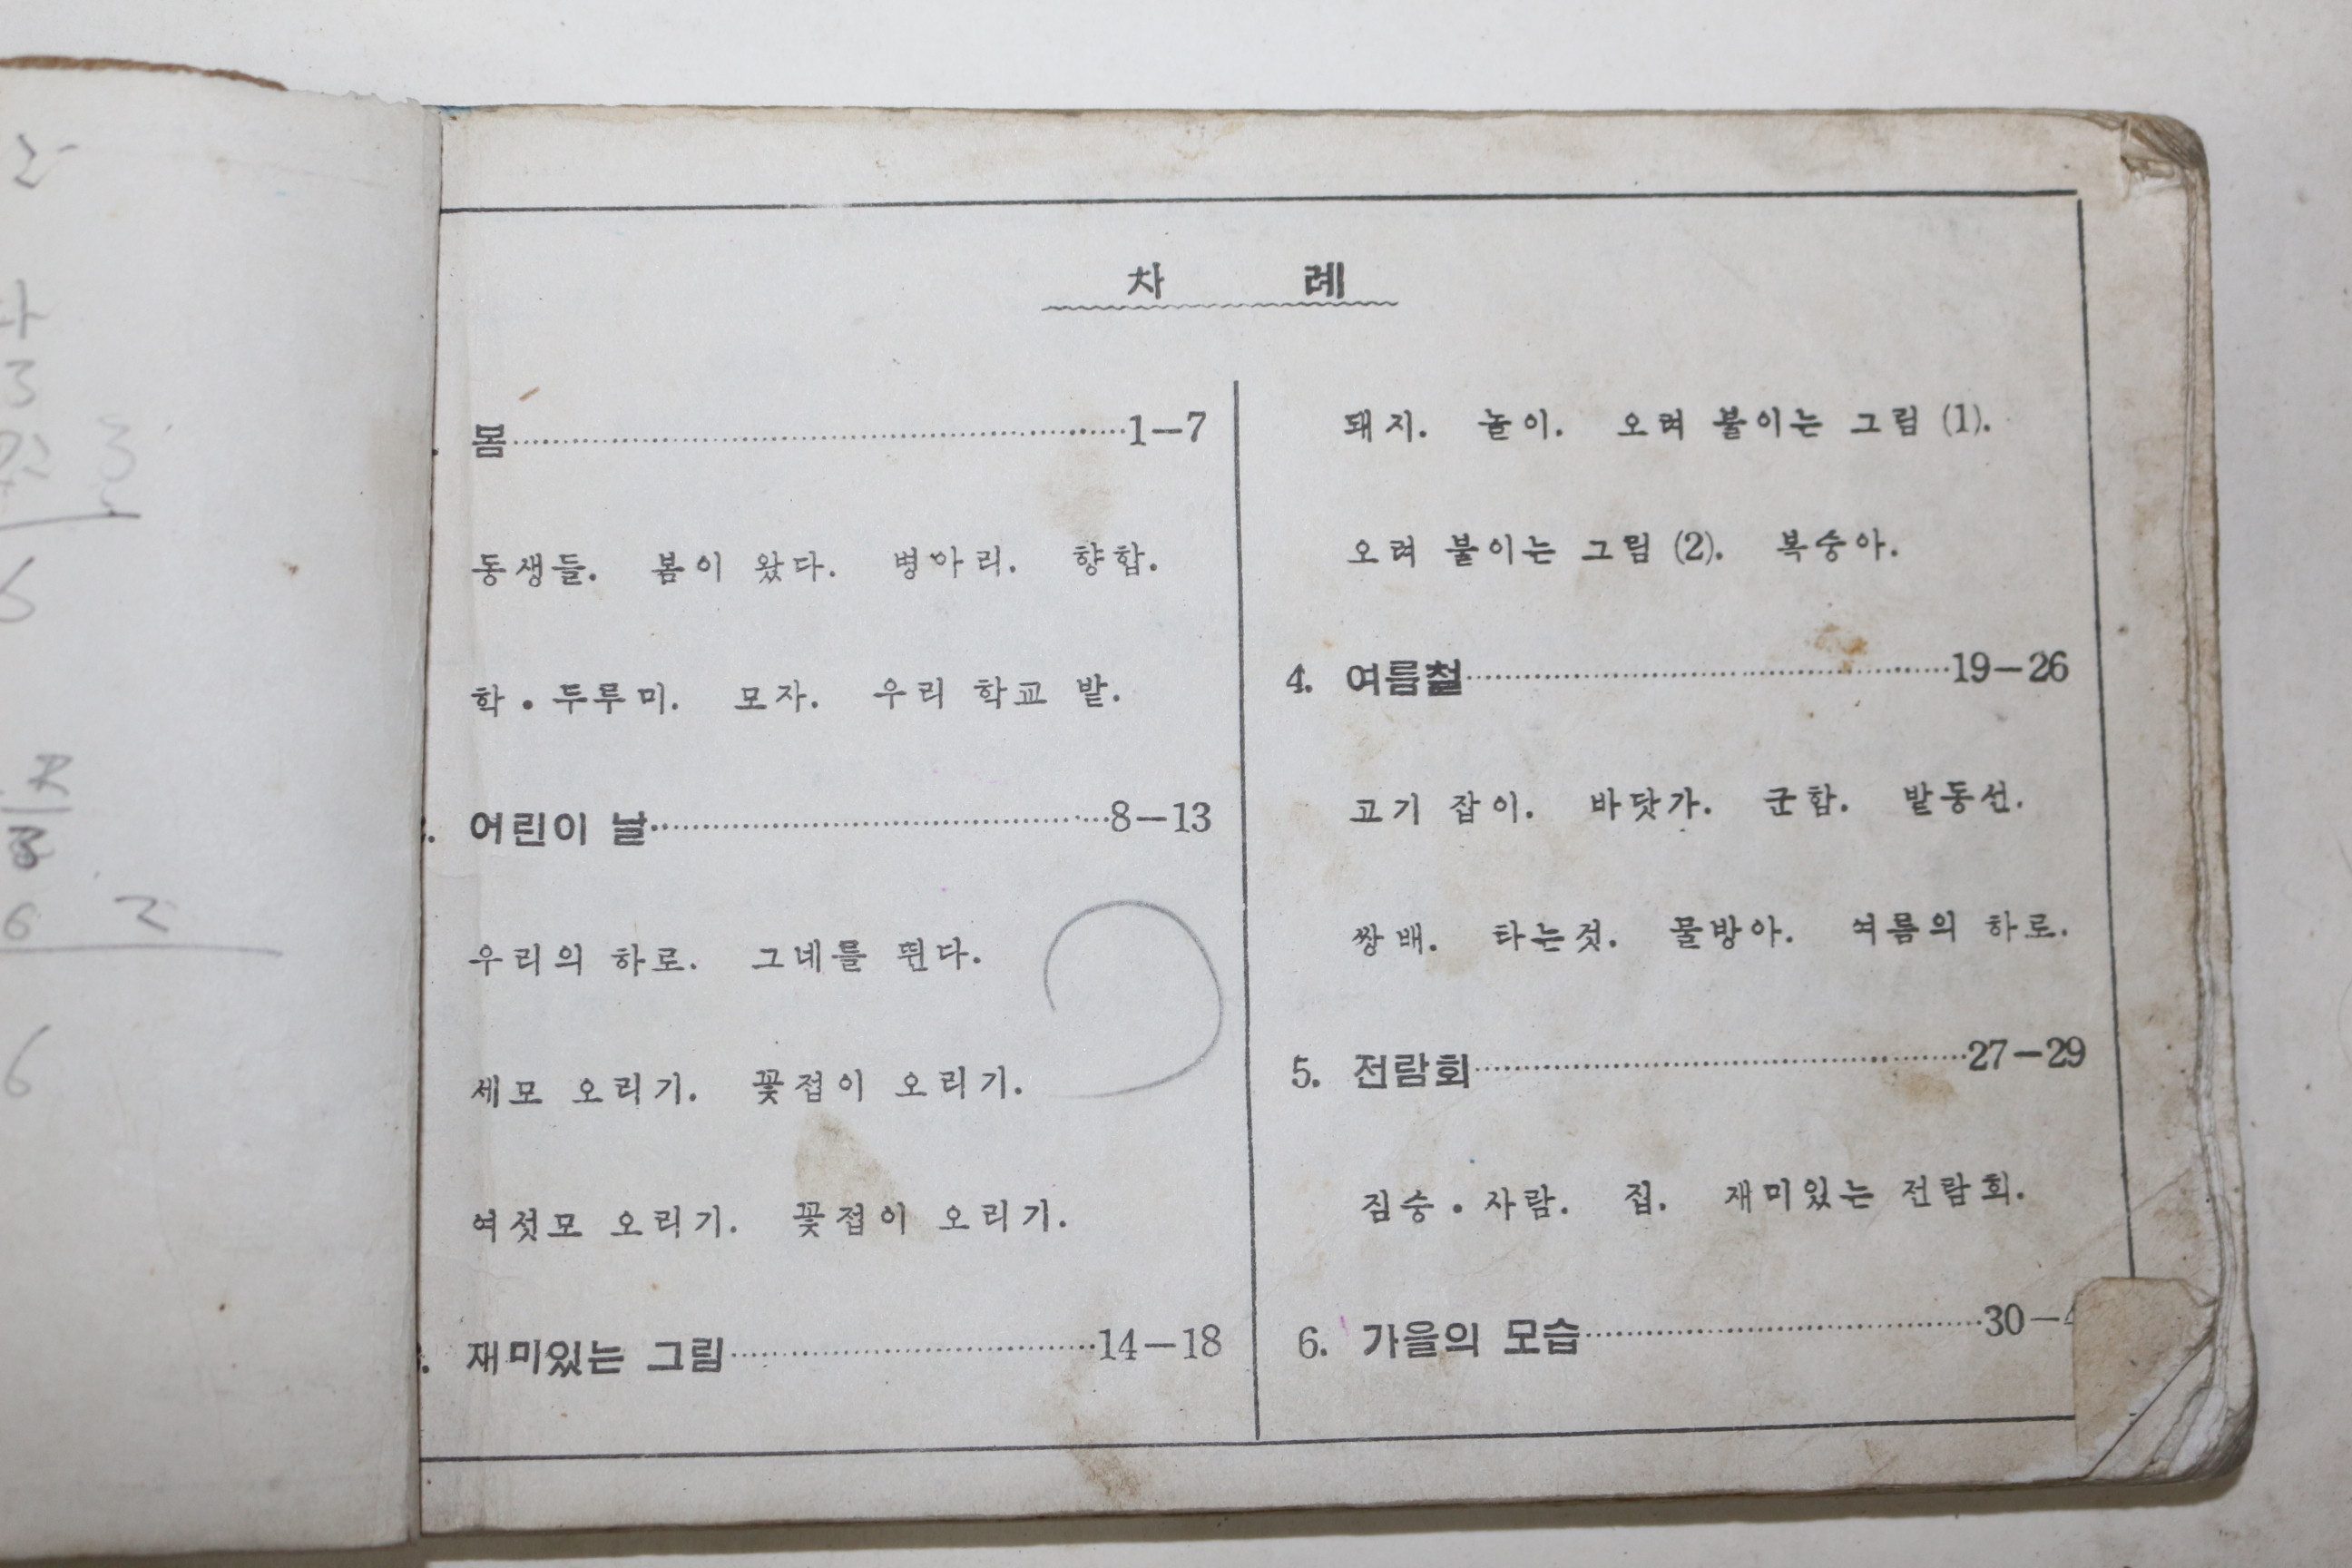 차 례
. 봄 1—7
동생들. 봄이 왔다. 병아리. 향합.
학 • 두루미. 모자. 우리 학교 밭.
. 어린이 날 8—13
우리의 하로. 그네를 뛴다.
세모 오리기. 꽃접이 오리기.
여섯모 오리기. 꽃접이 오리기.
. 재미있는 그림 14—18
돼지. 놀이. 오려 붙이는 그림 (1).
오려 붙이는 그림 (2). 복숭아.
4. 여름철 19—26
고기 잡이. 바닷가. 군함. 발동선.
쌍배. 타는것. 물방아. 여름의 하로.
5. 전람회 27—29
짐승 • 사람. 집. 재미있는 전람회.
6. 가을의 모습 30—